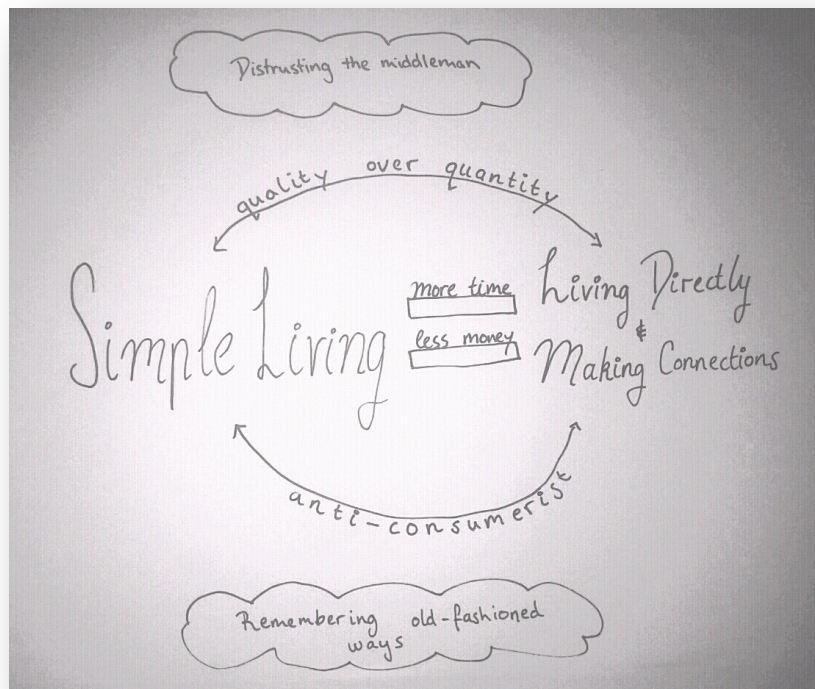 Distrusting the middleman
quality over quantity
Simple Living
more time
less money
Living Directly
&
Making Connections
anti-consumerist
Remembering old-fashioned
ways